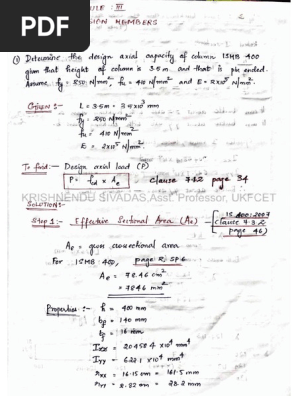 PDF
MODULE : III
COMPRESSION MEMBERS
① Determine the design axial capacity of column ISMB 400
given that height of column is 3.5 m and that is pin ended.
Assume fy = 250 N/mm², fu = 410 N/mm² and E = 2×10⁵ N/mm².
Given :-
L = 3.5m = 3.5×10³ mm
fy = 250 N/mm²
fu = 410 N/mm²
E = 2×10⁵ N/mm²
To find :- Design axial load (P)
P = fcd × Ae clause 7.1.2 page 34
KRISHNENDU SIVADAS,Asst. Professor, UKFCET
SOLUTION:-
Step 1 :- Effective Sectional Area (Ae) -
IS 800:2007
clause 7.3.2
page 46
Ae = gross crossectional area
For ISMB 400, page 2, SP6
Ae = 78.46 cm²
= 7846 mm²
Properties :- h = 400 mm
bf = 140 mm
tf = 16 mm
Ixx = 20458.4 ×10⁴ mm⁴
Iyy = 622.1 ×10⁴ mm⁴
rxx = 16.15 cm = 161.5 mm
ryy = 2.82 cm = 28.2 mm